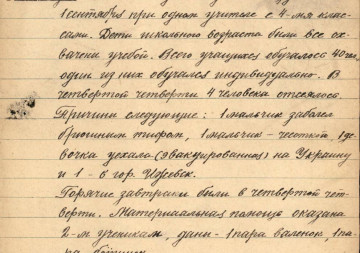 1 сентября при одном учителе с 4-мя клас-
сами. Дети школьного возраста были все ох-
вачены учебой. Всего учащихся обучалось 40 чел.
один из них обучался индивидуально. В
четвертой четверти 4 человека отсеялось.
Причины следующие: 1 мальчик заболел
брюшным тифом, 1 мальчик - чесоткой, 1 де
вочка уехала (эвакуированная) на Украину
и 1 - в гор. Ижевск.
Горячие завтраки были в четвертой чет-
верти. Материальная помощь оказана
2-м ученикам, дали - 1 пара валенок, 1 па-
ра ботинок